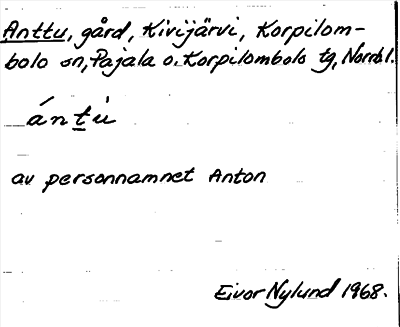 Anttu, gård, Kivijärvi, Korpilom-
bolo sn, Pajala o. Korpilombolo tg, Norrb l.
ántù
av personnamnet Anton
Eivor Nylund 1968.